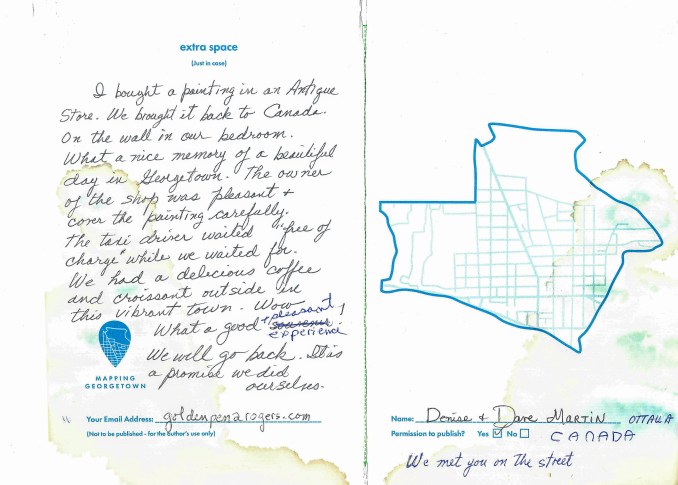 extra space
(Just in case)
I bought a painting in an Antique
Store. We brought it back to Canada.
On the wall in our bedroom.
What a nice memory of a beautiful
day in Georgetown. The owner
of the shop was pleasant +
cover the painting carefully.
The taxi driver waited "free of
charge" while we waited for.
We had a delecious coffee
and croissant outside in
this vibrant town. Wow
What a good + pleasant !
experience
We will go back. It is
a promise we did
ourselves.
MAPPING
GEORGETOWN
Your Email Address: goldenpen2rogers.com
(Not to be published - for the author's use only)
Name: Denise & Dave MARTIN OTTAWA
Permission to publish? Yes ☑ No ☐ CANADA
We met you on the street